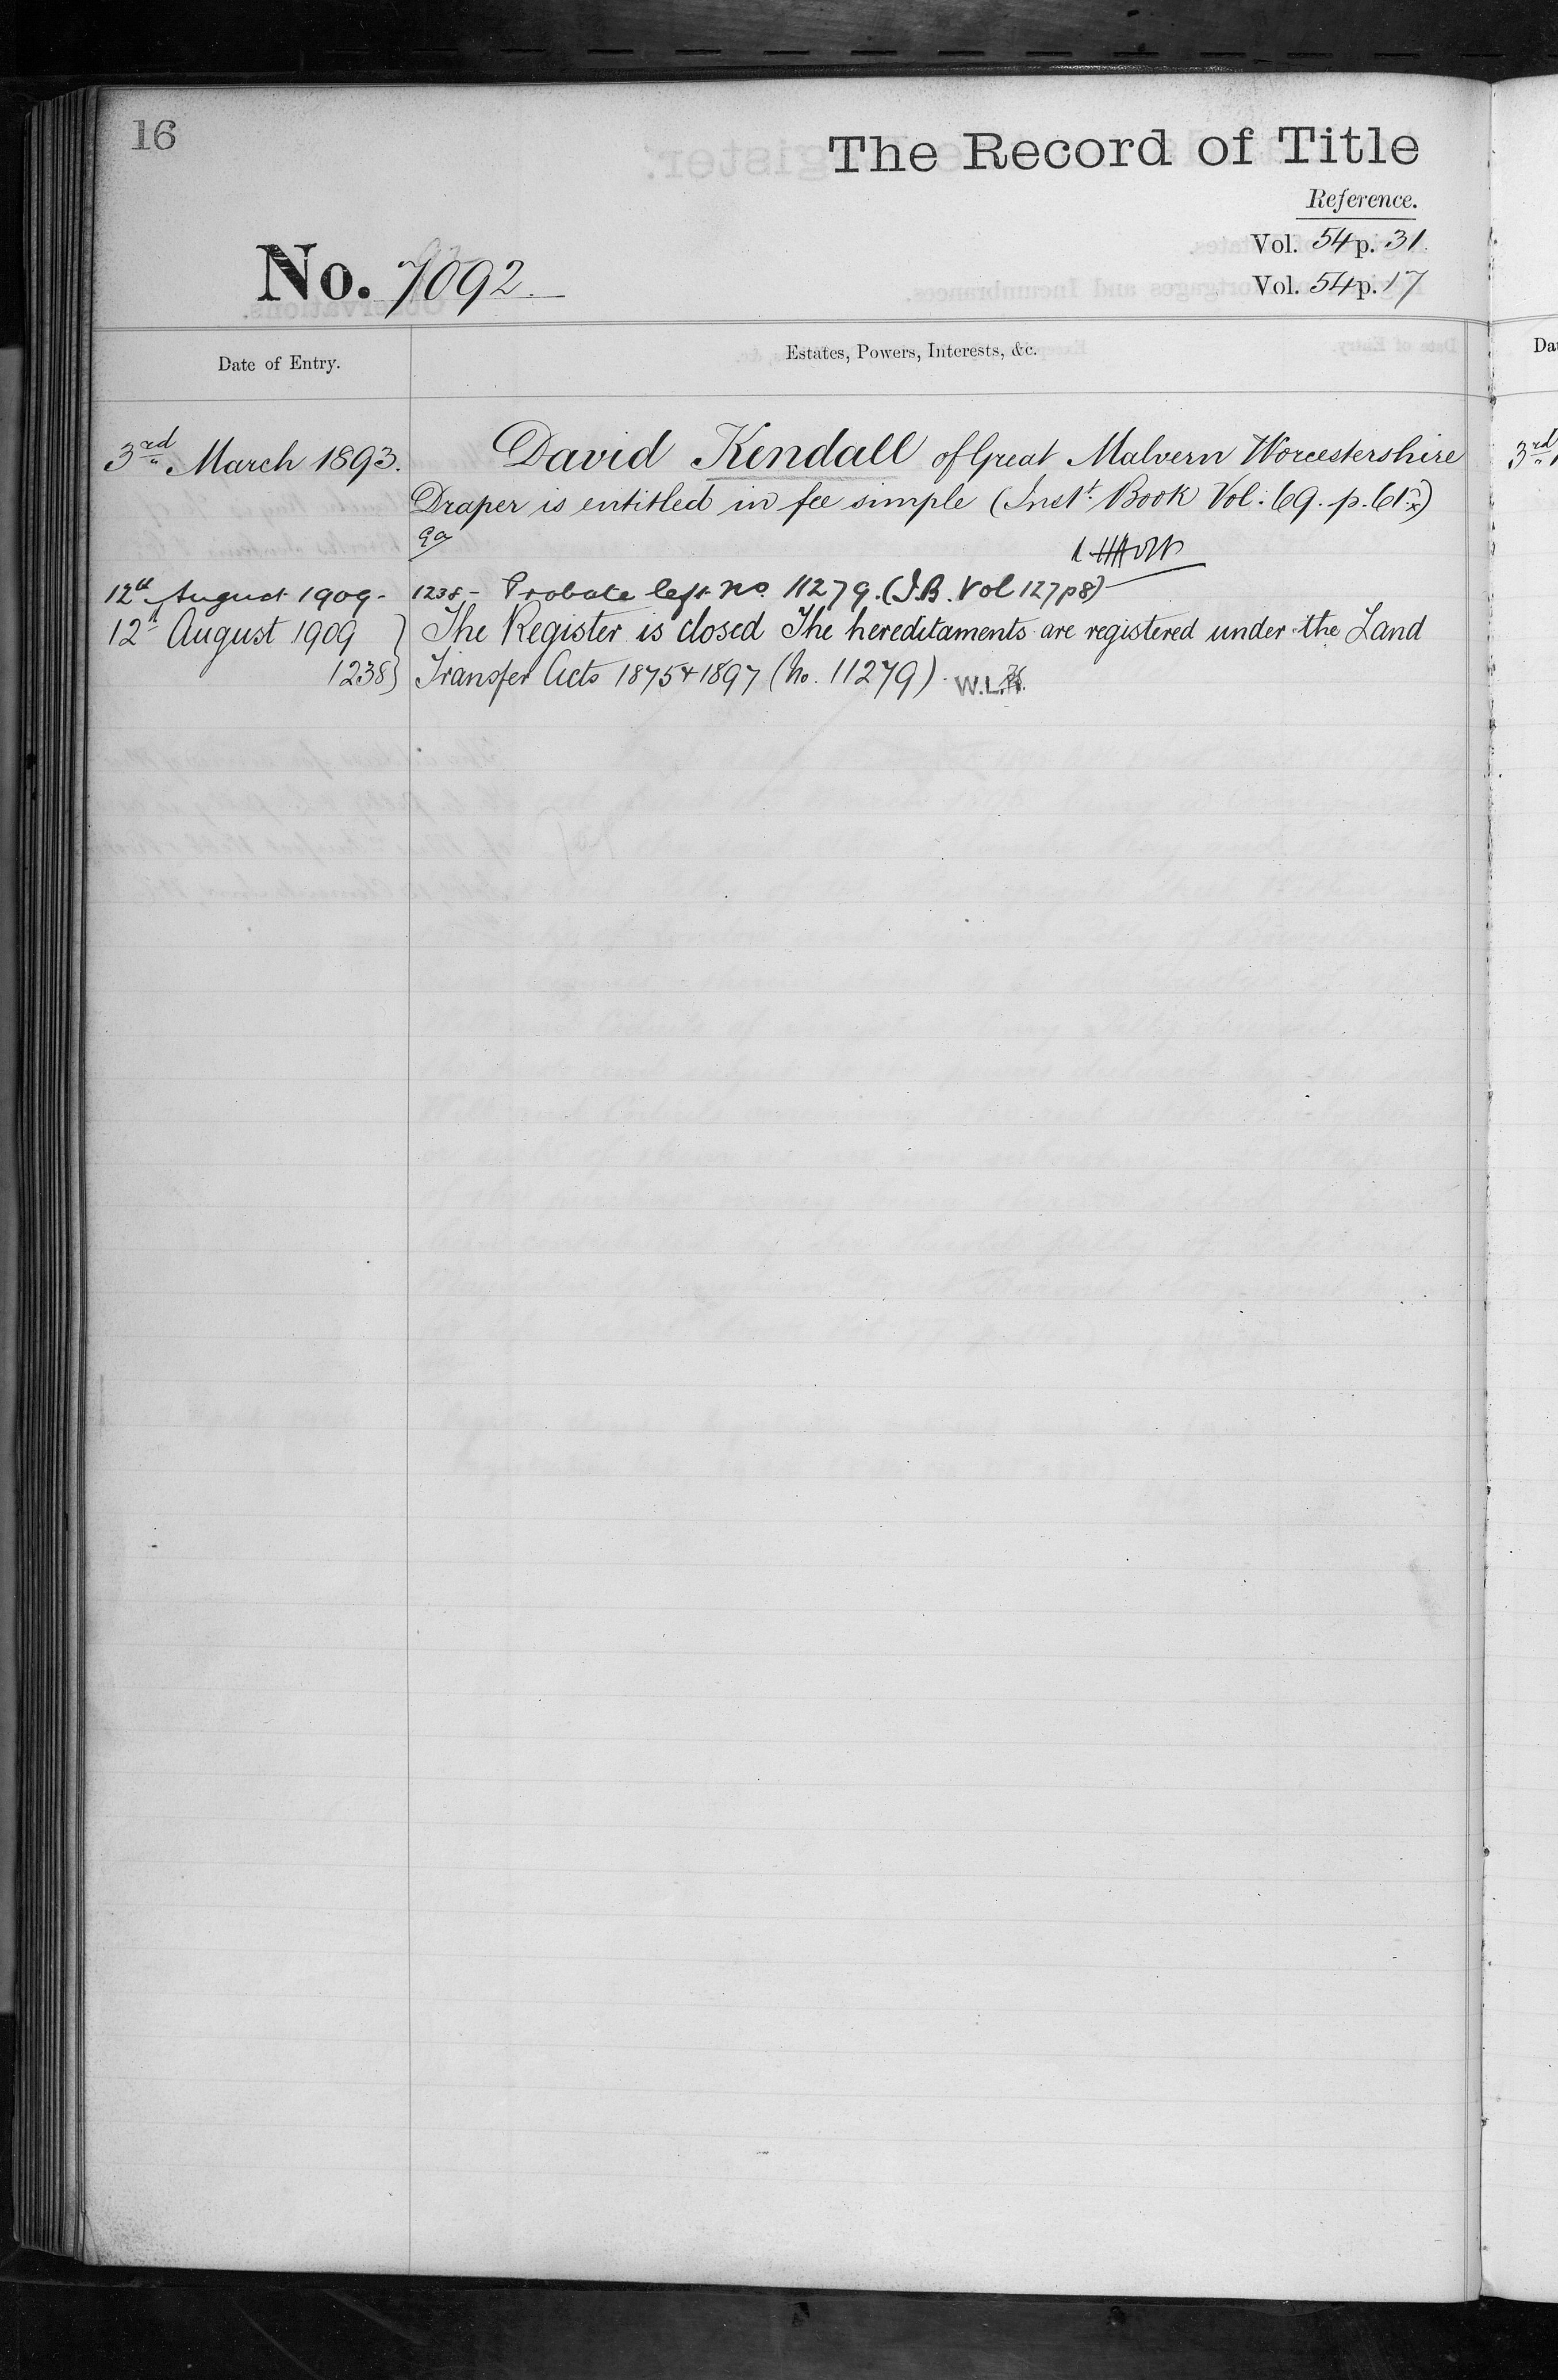 16
The Record of Title
Reference.
Vol. 54 p. 31.
No. 7092.
Vol. 54 p. 17
Date of Entry.
Estates, Powers, Interests, &c.
Da
3rd March 1893.
David Kendall of Great Malvern Worcestershire
3rd
Draper is entitled in fee simple (Inst. Book Vol: 69. p. 61.x)
12th August 1909.
1238 - Probate left no. 11279. (I.B. Vol 127 p8)
12th August 1909 }
The Register is closed The hereditaments are registered under the Land
1238 }
Transfer Acts 1875 & 1897 (No. 11279). W.L.